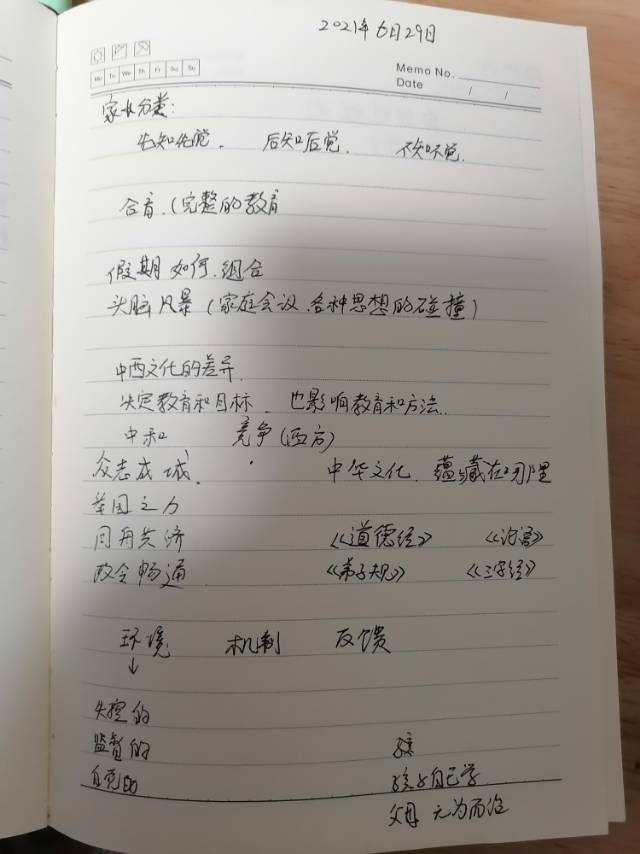 2021年6月29日
Memo No.
Mo Tu We Th Fr Sa Su
Date / /
家长分类：
先知先觉. 后知后觉. 不知不觉.
合育.(完整的教育
假期 如何.组合
头脑风暴(家庭会议.各种思想的碰撞)
中西文化的差异.
决定教育和目标. 也影响教育和方法.
中和 竞争(西方)
众志成城. 中华文化.蕴藏在哪里
举国之力
同舟共济 《道德经》 《论语》
政令畅通 《弟子规》 《三字经》
环境 机制 反馈
↓
失控的
监督的 孩
自觉的 孩子自己学
父母 无为而治